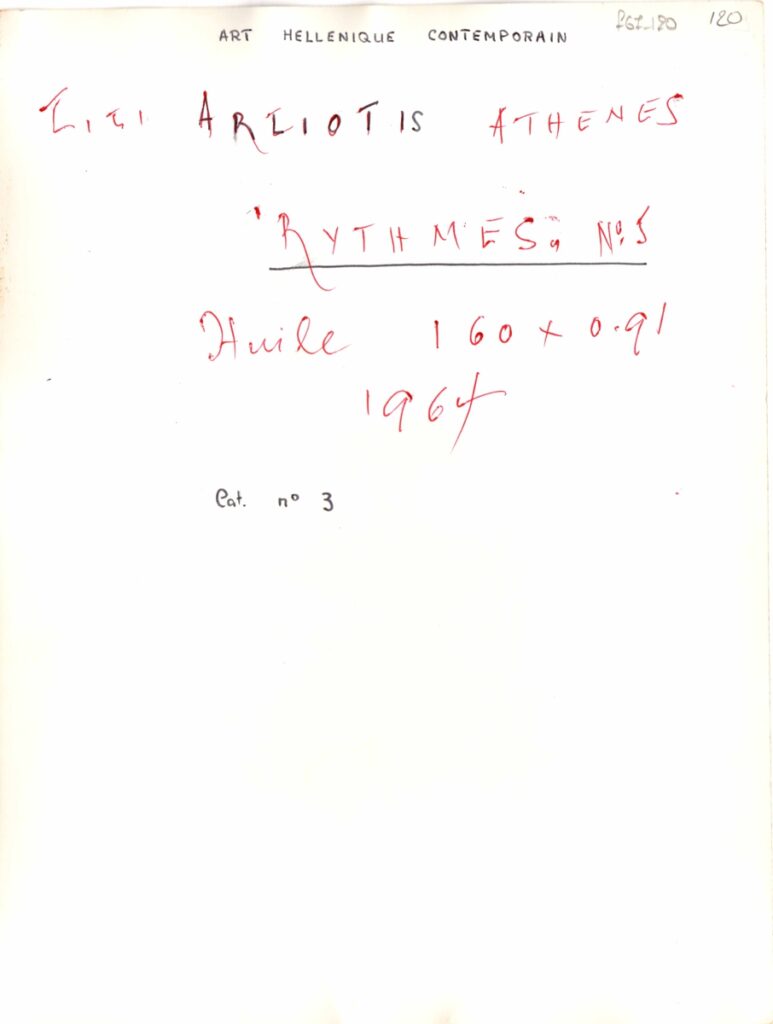 120
ART HELLENIQUE CONTEMPORAIN
LILI ARLIOTIS ATHENES
"RYTHMES" No. 5
Huile 160 x 0.91
1964
Cat. n° 3